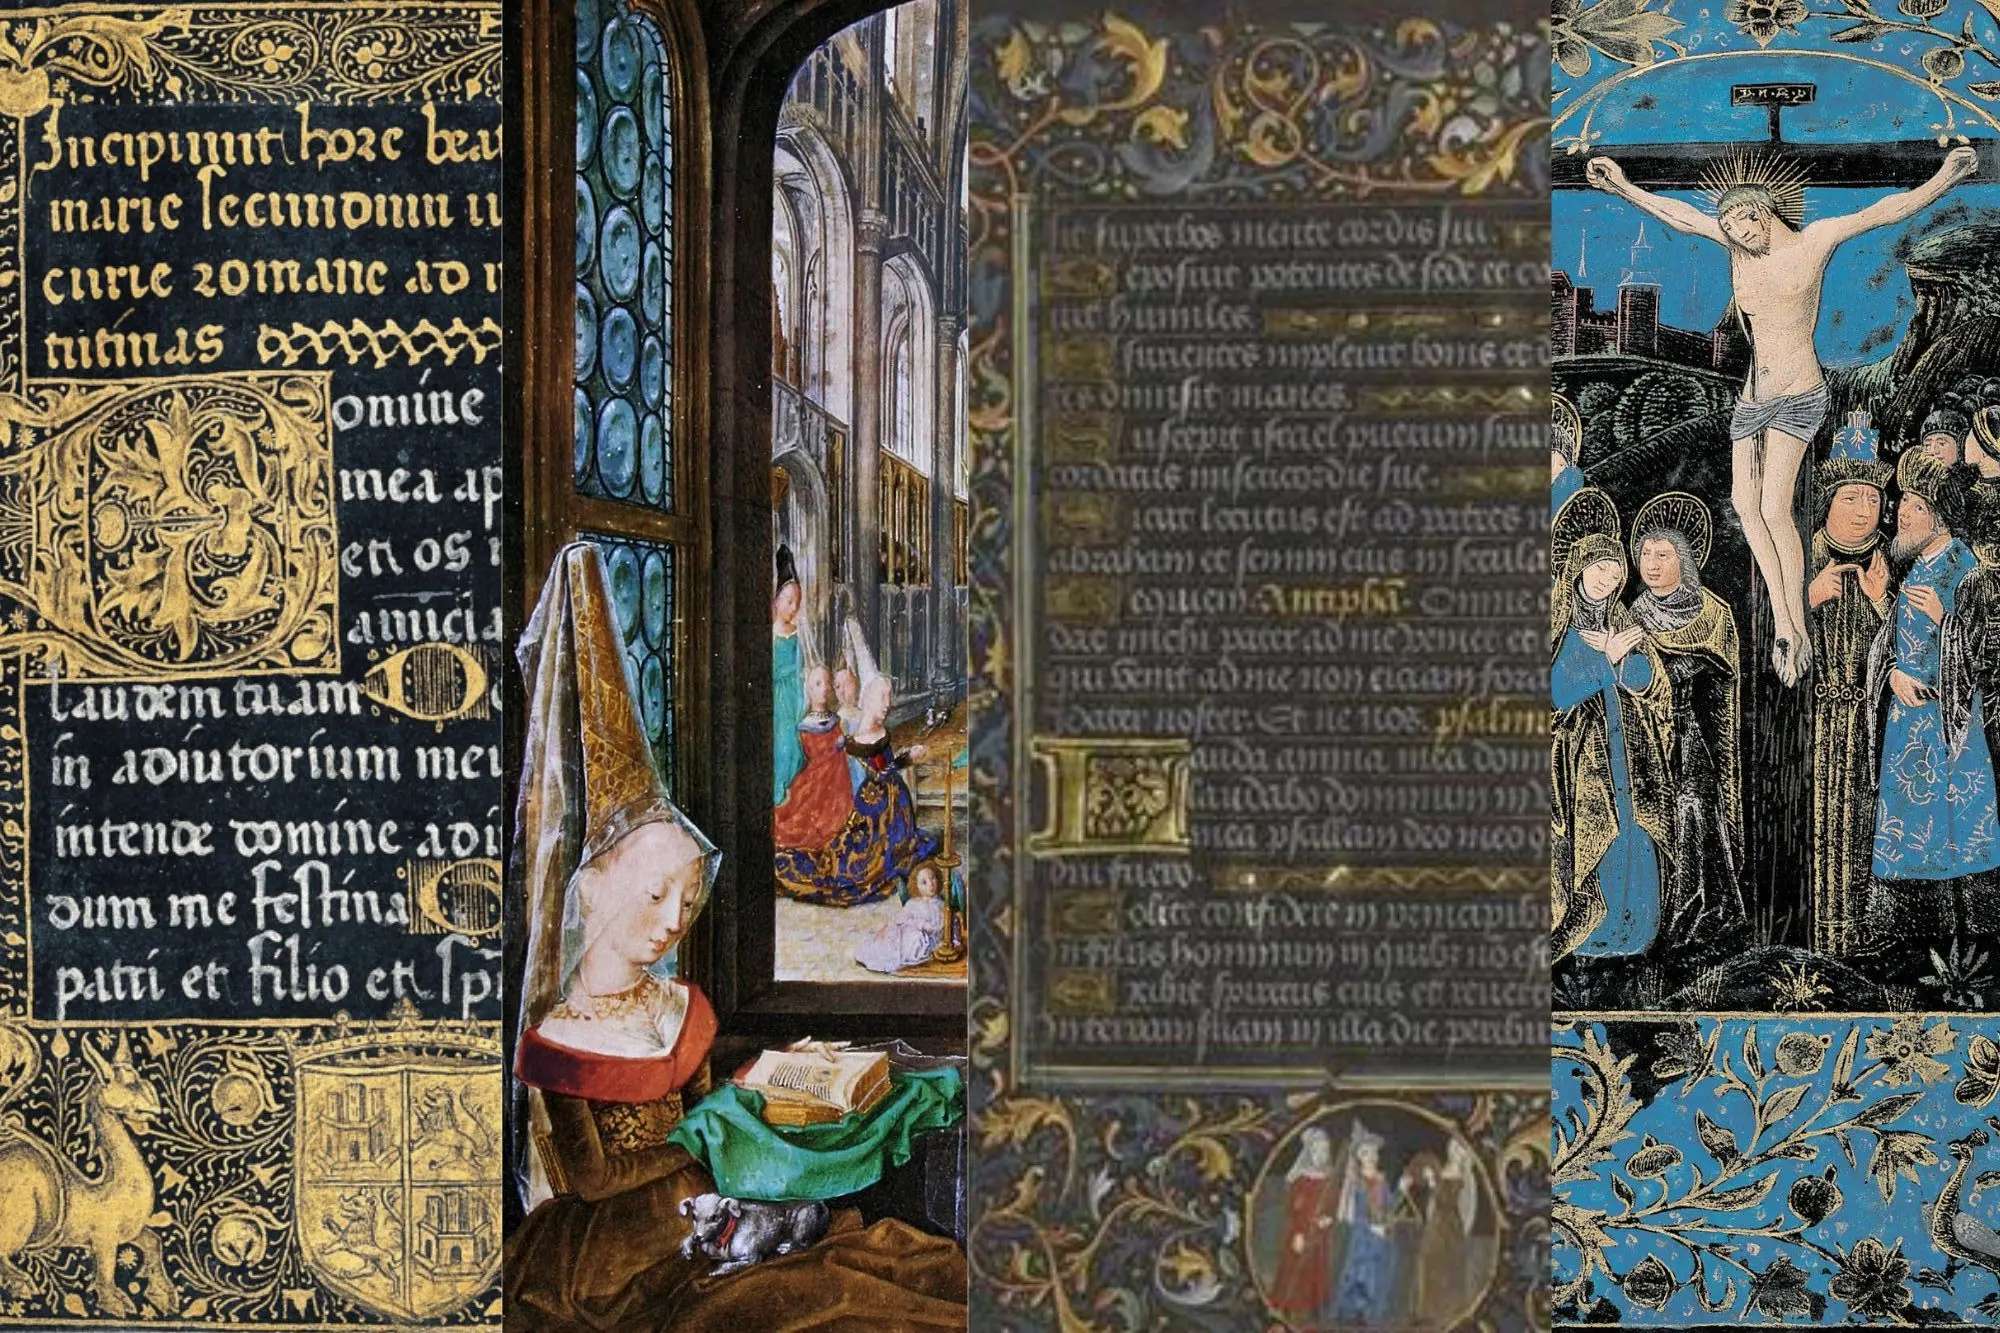 Incipiunt hore bea
marie secundum
curie romane ad
tutinas
Domine
mea ap
et os
laudem tuam D
in adiutorium meu
intende domine adi
dum me festina G
patri et filio et
superbos mente cordis sui.
eposuit potentes de sede et
humiles
surientes impleuit bonis et
dimisit inanes.
uscepit israel puerum suu
cordatus misericordie sue.
icut locutus est ad patres
abraham et semini eius in secula
Antiphā. Omne
dat michi pater ad me veniet et
qui venit ad me non eiciam fora
Pater noster. Et ne nos. psalmu
Lauda anima mea dom
laudabo dominum in
mea psallam deo meo q
diu fuero.
olite confidere in principib
in filiis hominum in quib; no est
xibit spiritus eius et reuert
in terram suam in illa die peribu